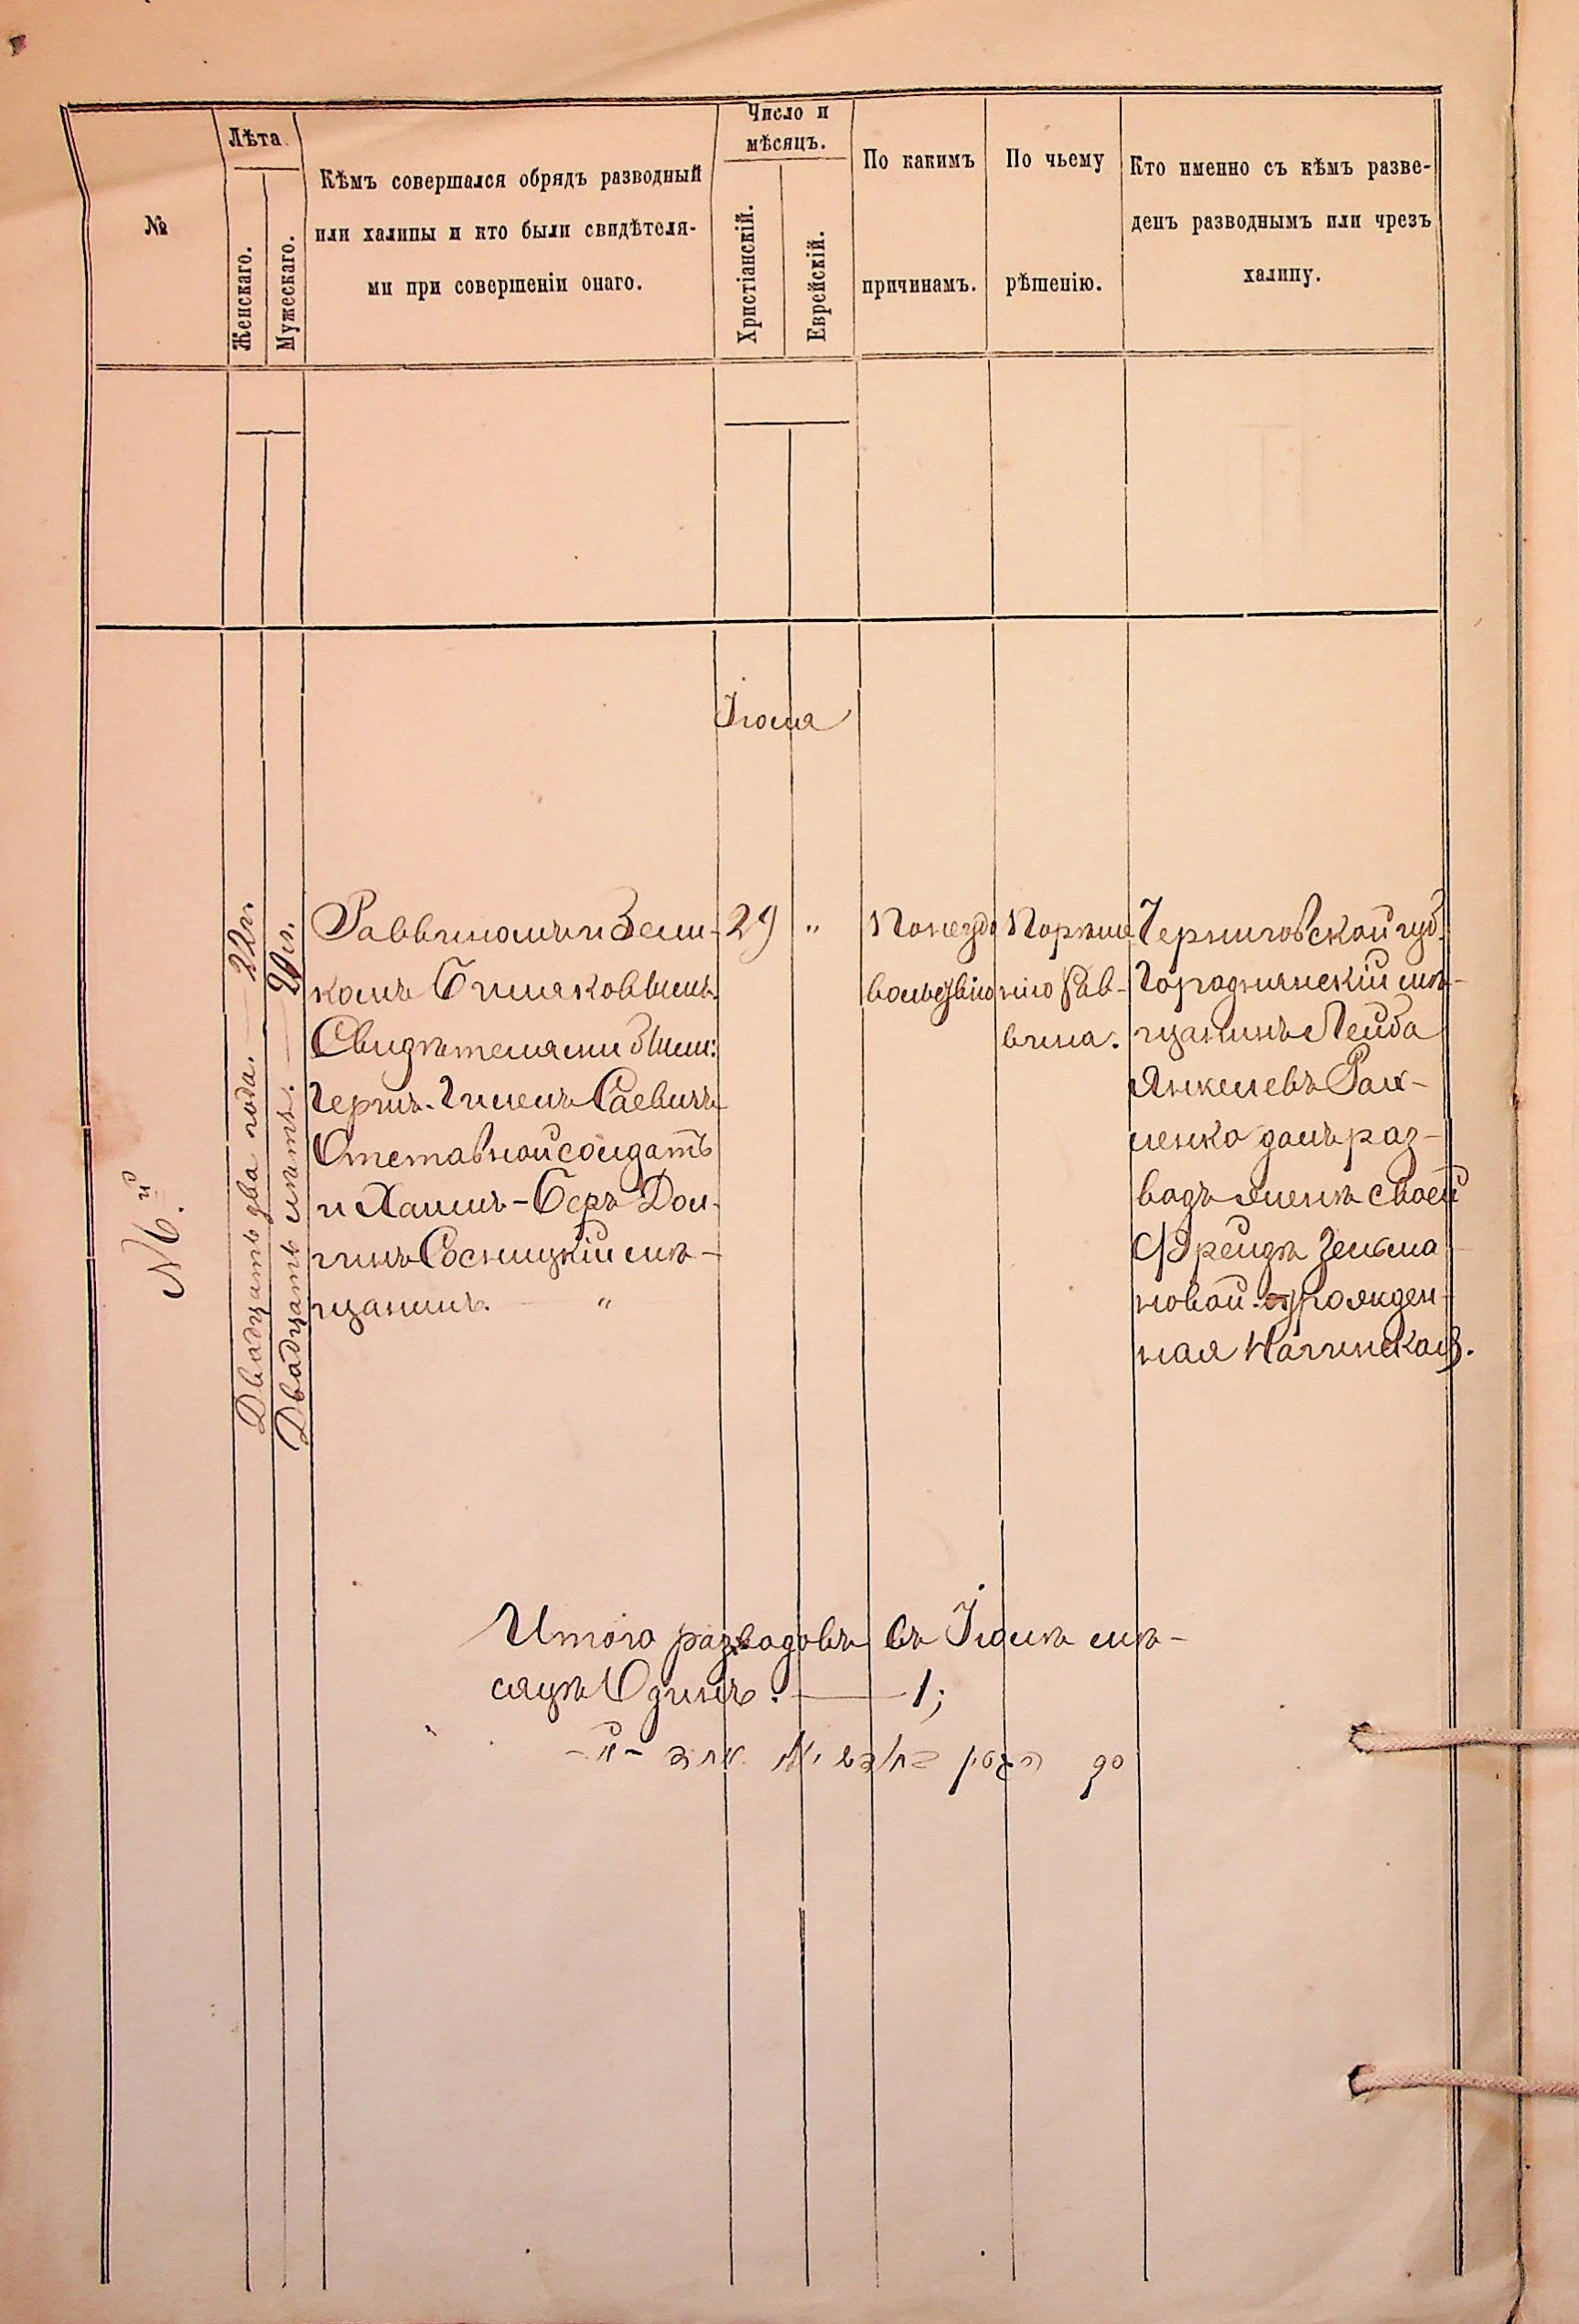 №
Лѣта
Женскаго.
Мужескаго.
Кѣмъ совершался обрядъ разводный
или халицы и кто были свидѣтеля-
ми при совершеніи онаго.
Число и
мѣсяцъ.
Христіанскій.
Еврейскій.
По какимъ
причинамъ.
По чьему
рѣшенію.
Кто именно съ кѣмъ разве-
денъ разводнымъ или чрезъ
халицу.
Двадцать два года. 22 г.
Двадцать лѣтъ. 20 г.
Раввиномъ Зели-
комъ
Свидѣтелями были:
Отставной солдатъ
и Хаимъ-Беръ Дол-
гинъ Сосницкій мѣ-
щанинъ. "
29 "
По неудо
вольствію
По рѣше
нію Рав-
вина.
Черниговской губ.
Городнянскій мѣ-
щанинъ Лейба
Янкелевъ
далъ раз-
водъ женѣ своей
Фрейдѣ Зельма
новой урожден-
ная
Итого разводовъ въ мѣ-
сяцѣ Одинъ. — 1;